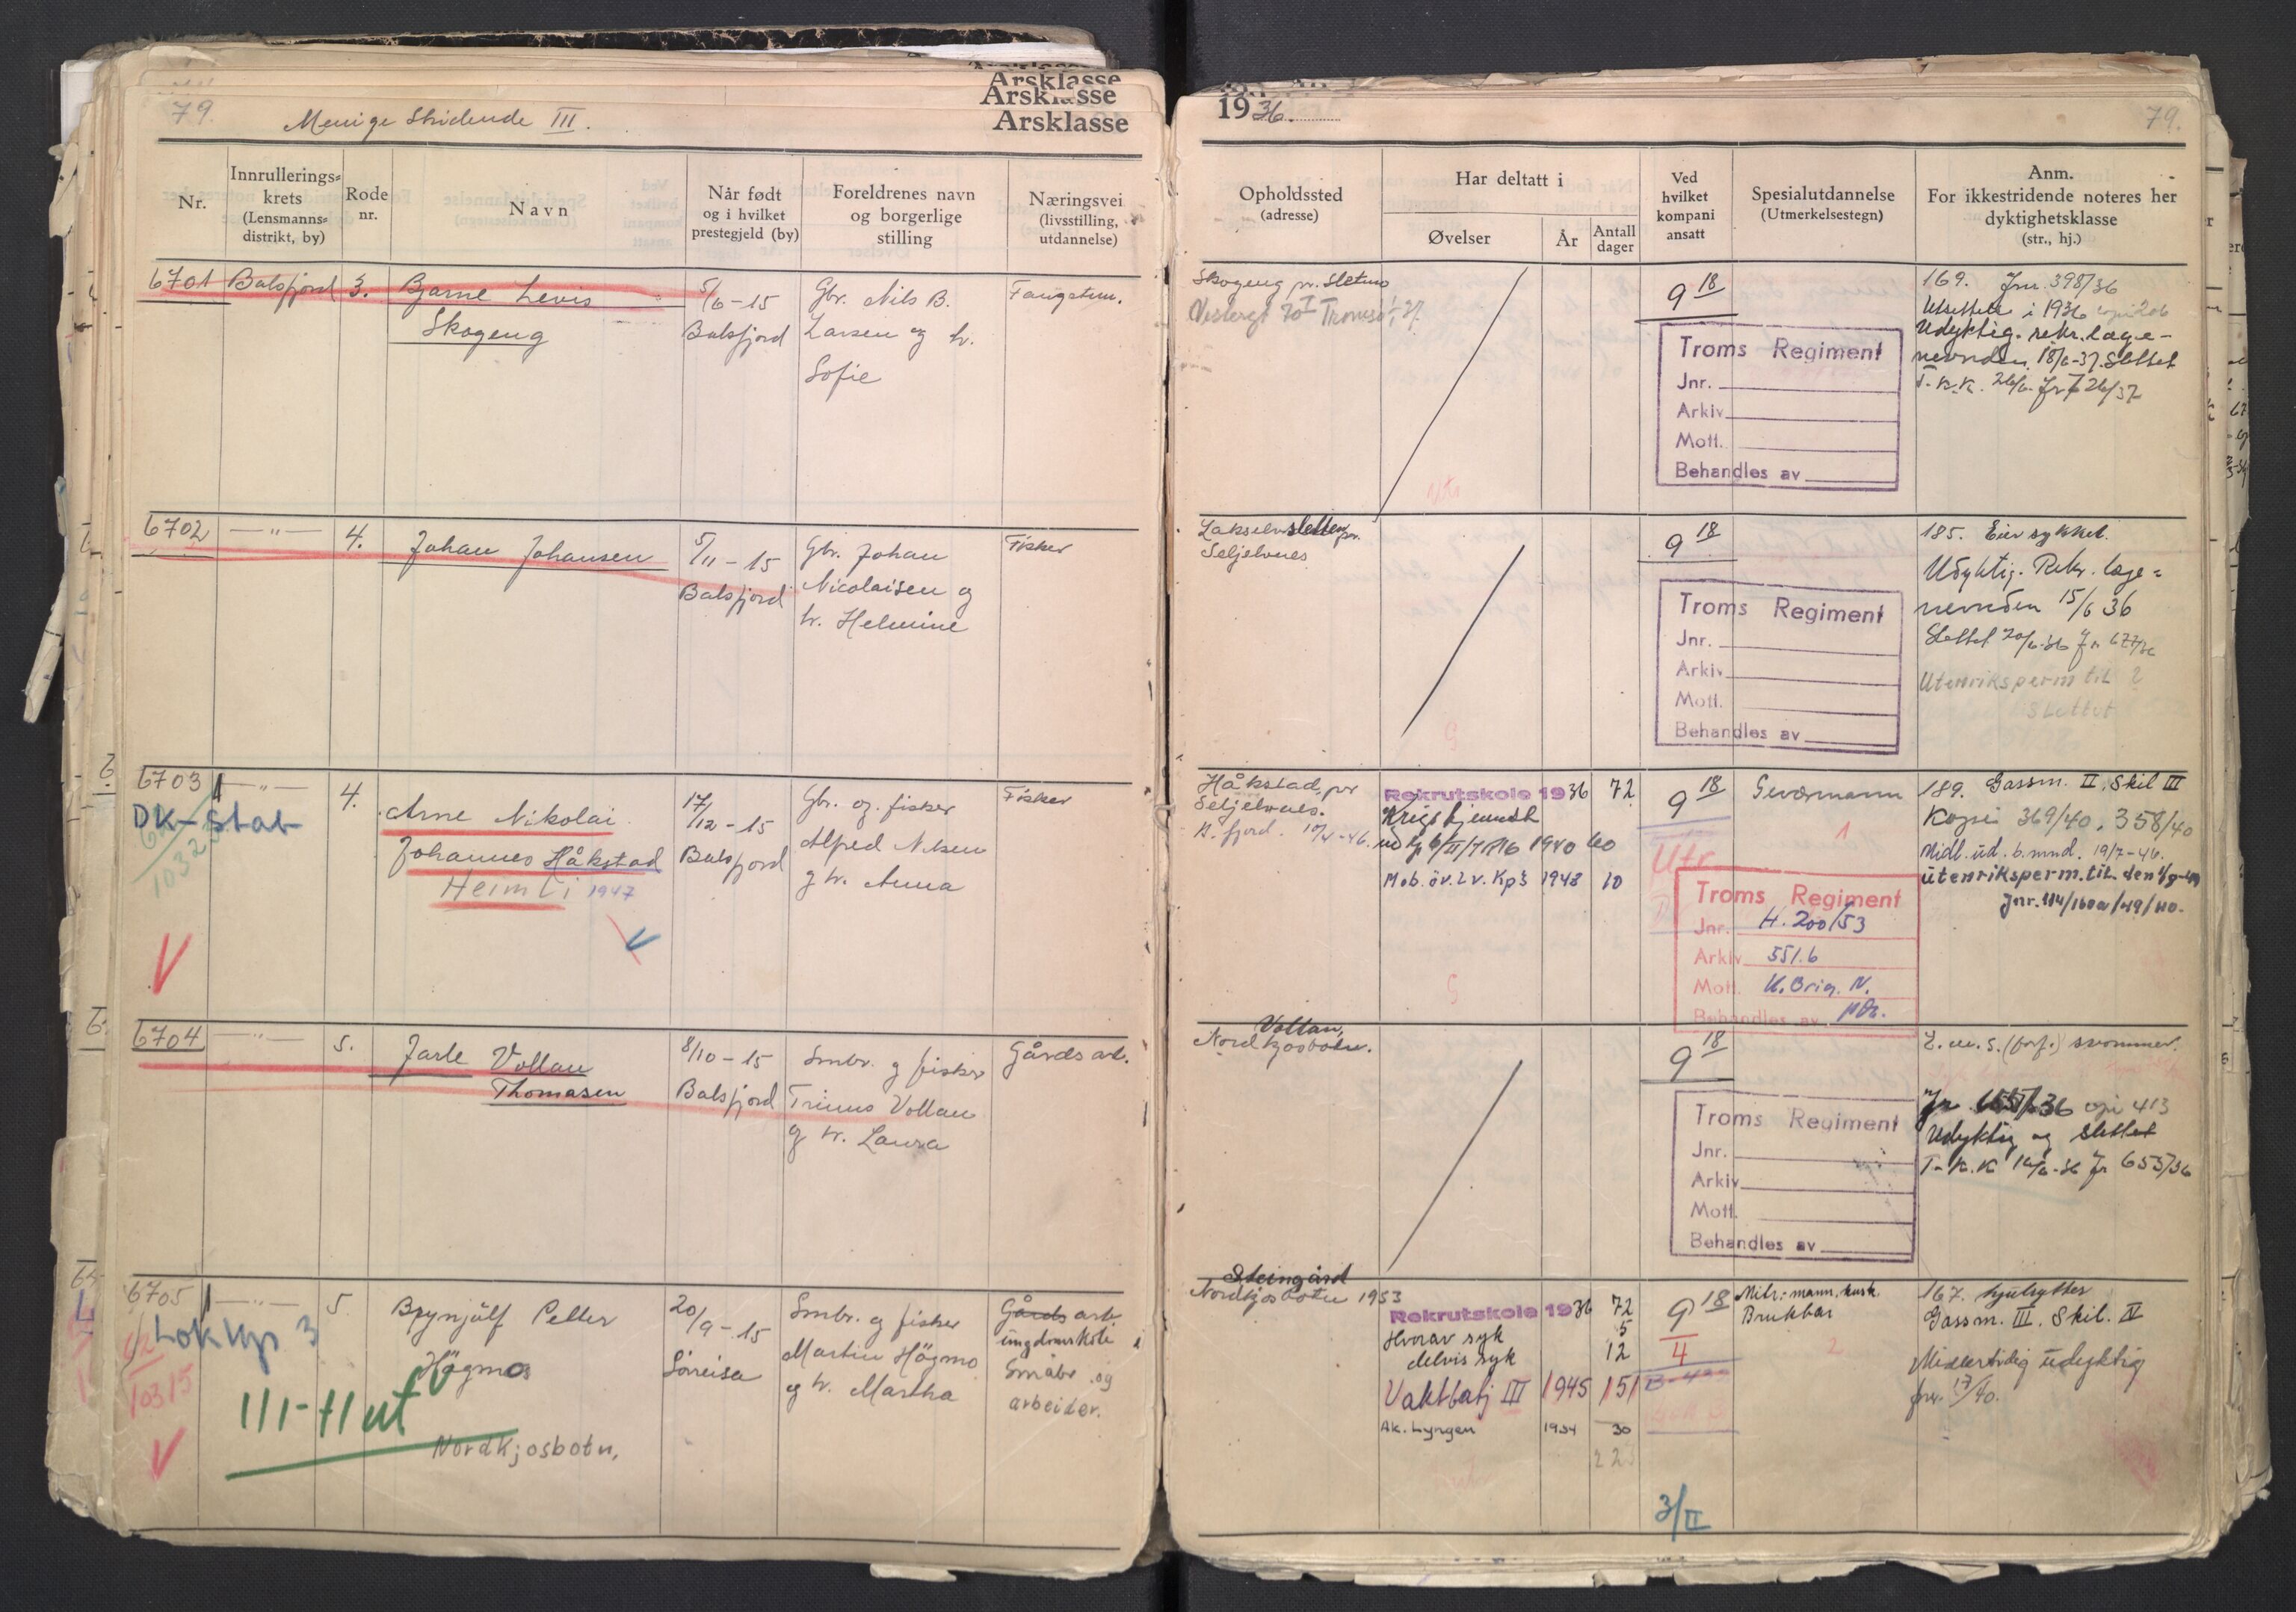 79.
Menige Stridende III.
Årsklasse
Årsklasse
Årsklasse
Nr.
Innrullerings=
krets
(Lensmanns=
distrikt, by)
Rode
nr.
Navn
Når født
og i hvilket
prestegjeld (by)
Foreldrenes navn
og borgerlige
stilling
Næringsvei
(livsstilling,
utdannelse)
6701 Balsfjord 3. Bjarne Levis
Skogeng
5/6-15
Balsfjord
Gbr. Nils B.
Larsen og h.
Sofie
Fangstm.
6702 —"— 4. Johan Johansen
5/11-15
Balsfjord
Gbr. Johan
Nicolaisen og
h. Helmine
Fisker
6703 —"— 4. Arne Nikolai
DK-Stab
Johannes Håkstad
Heimli 1947
17/12-15
Balsfjord
Gbr. og fisker
Alfred Nilsen
og h. Anna
Fisker
6704 —"— 5. Jarle Vollan
Thomasen
8/10-15
Balsfjord
Smbr. og fisker
Vollan
og h. Laura
Gårdsarb.
6705 —"— 5. Brynjulf Petter
Lok Kp 3
Högmo
10315
III-H ut
Nordkjosbotn,
20/9-15
Sörreisa
Smbr. og fisker
Martin Högmo
og h. Martha
Gårdsarb
ungdomskole
Småbr. og
arbeider.
1936.
79.
Opholdssted
(adresse)
Har deltatt i
Øvelser
År
Antall
dager
Ved
hvilket
kompani
ansatt
Spesialutdannelse
(Utmerkelsestegn)
Anm.
For ikkestridende noteres her
dyktighetsklasse
(str., hj.)
Skogeng pr. Sletmo
Tromsø
9 18
Troms Regiment
Jnr.
Arkiv
Mott.
Behandles av
169. Jnr. 398/36
Utsettelse i 1936 kopi 206
Udyktig. rekr. læge-
nevnden 18/6-37. Slettet
T.K.K. 26/6. Jr 726/37
Lakselvsletten pr.
Seljelvnes
9 18
Troms Regiment
Jnr.
Arkiv
Mott.
Behandles av
185. Eier sykkel.
Udyktig. Rekr. læge=
nevnden 15/6 36
Slettet 20/6-36 Jr 677/36
Utenriksperm til ?
Slettet
Håkstad, pr
Seljelvnes.
Rekrutskole 1936 72
1940 60
Mob. öv. Lv. Kp's 1948 10
9 18
Utr
Geværmann
1
Troms Regiment
Jnr. H. 200/53
Arkiv 551.6
Mott. K. Brig. N.
Behandles av
189. Gassm. II, Skil III
Kopi 369/40, 358/40
Midl. ud. b. mnd. 19/7-46.
utenriksperm. til den
Vollan,
Nordkjosbotn.
9 18
Troms Regiment
Jnr.
Arkiv
Mott.
Behandles av
svömmer.
kopi 413
Udyktig og slettet
T.K.K 16/6-36 Jr 653/36
Steingård
Nordkjosbotn 1953
Rekrutskole 1936 72
Hvorav syk 5
delvis syk 12
Vaktbatj III 1945 151
Ak. Lyngen 1954 30
9 18
4
3/II
Mitr: mann, kusk
Brukbar
2
167. hjulrytter
Gassm. III. Skil. IV
Midlertidig udyktig